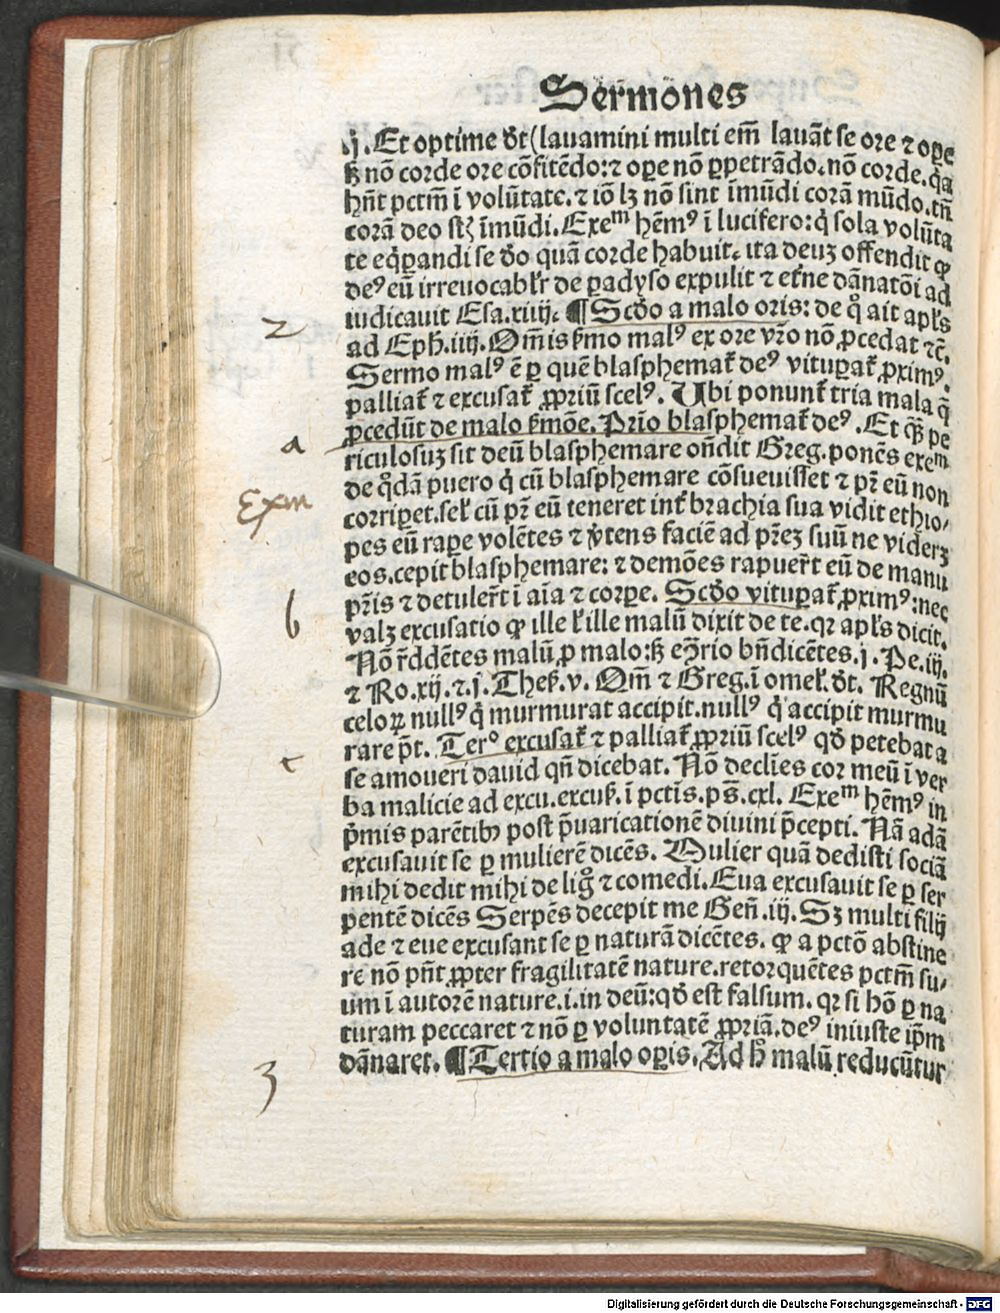 Sermones
.j. Et optime dt (lauamini multi em̄ lauāt se ore ⁊ oꝑe
ſꝫ nō corde ore cōfitēdo: ⁊ oꝑe nō ꝑpetrādo. nō corde. q̄a
hn̄t pctm̄ ī volūtate. ⁊ iō lꝫ nō sint īmūdi corā mūdo. tn̄
corā deo st̄ īmūdi. Exeᵐ hēmꝰ ī lucifero: q̇ sola volūta
te eq̇ꝑandi se dō quā corde habuit. ita deuꝫ offendit ꝙ
deꝰ eū irreuocabłr de ꝑadyso expulit ⁊ et̄ne dānatōi ad
iudicauit Esa.xiiij. ¶ Scd̄o a malo oris: de q̊ ait apl̄s
ad Eph̄.iiij. Om̄is ẜmo malꝰ ex ore vr̄o nō ꝓcedat ⁊c̄.
Sermo malꝰ ē ꝑ quē blasphemat̄ deꝰ vituꝑat̄ ꝓximꝰ.
palliat̄ ⁊ excusat̄ ꝓpriū scelꝰ. Ubi ponunt̄ tria mala q̄
ꝓcedūt de malo ẜmōe. Prīo blasphemat̄ deꝰ. Et qꝫ pe
riculosuꝫ sit deū blasphemare on̄dit Greg. ponēs exeᵐ
de q̊dā puero q̇ cū blasphemare cōsueuisset ⁊ pr̄ eū non
corriꝑet. sel̄ cū pr̄ eū teneret int̄ brachia sua vidit ethio⸗
pes eū raꝑe volētes ⁊ v̓tens faciē ad pr̄eꝫ suū ne viderꝫ
eos. cepit blasphemare: ⁊ demōes rapuer̄t eū de manu
pr̄is ⁊ detuler̄t ī aīa ⁊ corꝑe. Scd̄o vituꝑat̄ ꝓximꝰ: nec
valꝫ excusatio ꝙ ille l̄ ille malū dixit de te. qr apl̄s dicit.
Nō r̄ddētes malū ꝓ malo: ſꝫ eꝯrio bn̄dicētes. j. Pe.iij.
⁊ Ro.xij. ⁊ .j. Theſ̄.v. Om̄ ⁊ Greg. ī omel̄. dt. Regnū
celoꝝ nullꝰ q̇ murmurat accipit. nullꝰ q̇ accipit murmu
rare pt̄. Terᵒ excusat̄ ⁊ palliat̄ ꝓpriū scelꝰ qd̄ petebat a
se amoueri dauid qn̄ dicebat. Nō declīes cor meū ī ver
ba malicie ad excu. excuſ̄. ī pctīs. ps̄. cxl. Exeᵐ hēmꝰ in
p̄mis parētibꝫ post p̄uaricationē diuini p̄cepti. Nā adā
excusauit se ꝑ mulierē dicēs. Mulier quā dedisti sociā
mihi dedit mihi de lig̊ ⁊ comedi. Eua excusauit se ꝑ ser
pentē dicēs Serpēs decepit me Gen̄.iij. Sꝫ multi filij
ade ⁊ eue excusant se ꝑ naturā dicētes. ꝙ a pctō abstine
re nō pn̄t ꝓpter fragilitatē nature. retorquētes pctm̄ su⸗
um ī autorē nature. i. in deū: qd̄ est falsum. qr si hō ꝑ na
turam peccaret ⁊ nō ꝑ voluntatē ꝓpriā. deꝰ iniuste ip̄m
dānaret. ¶ Tertio a malo oꝑis. Ad h̄ malū reducūtur
2
a
Exm
b
c
3
Digitalisierung gefördert durch die Deutsche Forschungsgemeinschaft - DFG